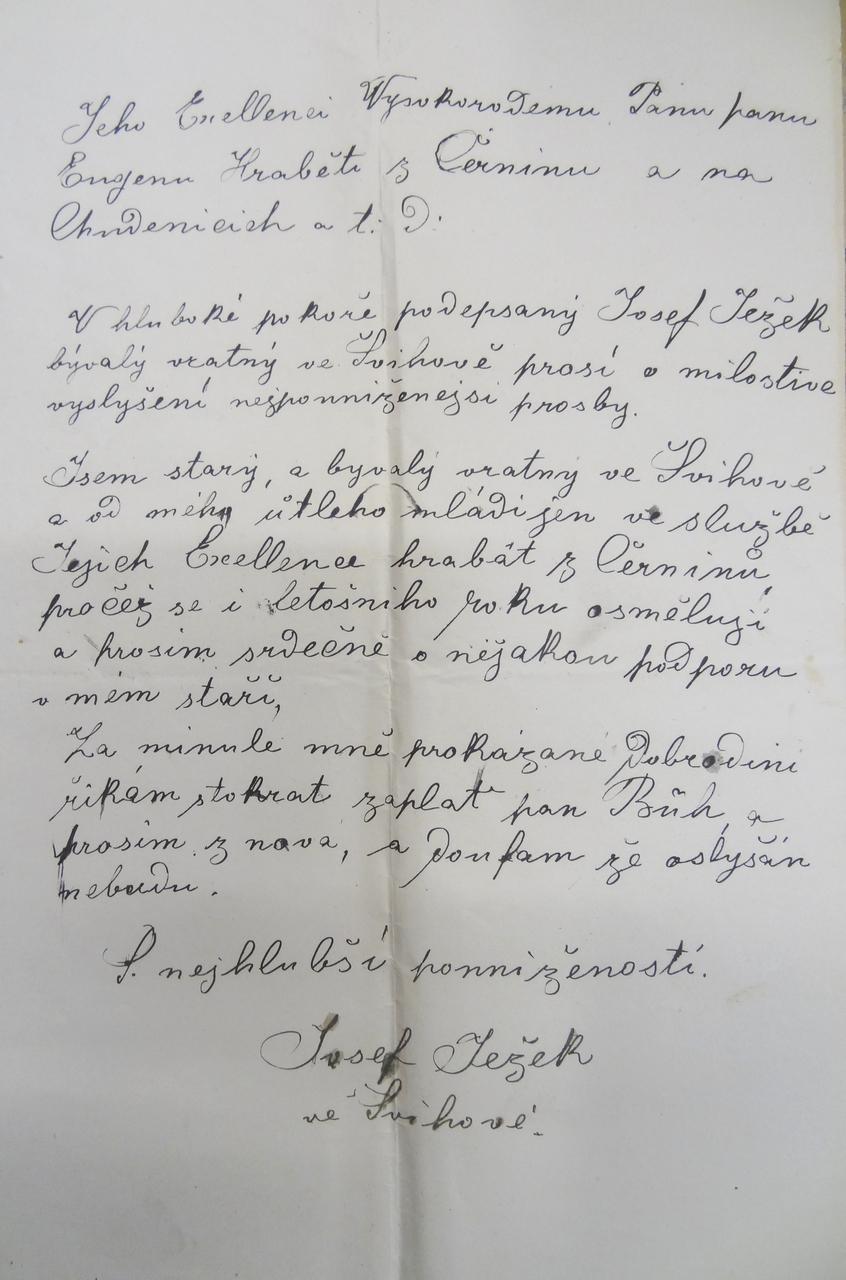 Jeho Exellenci Vysokorodemu Pánu panu
Eugenu Hraběti z Černinu a na
Chudenicich a t. d.
V hluboké pokoře podepsaný Josef Ježek
bývalý vratný ve Švihově prosí o milostive
vyslyšení nejponniženejsi prosby.
Jsem starý, a byvalý vratný ve Švihově
a od mého útleho mládi jen ve službě
Jejich Exellence hrabát z Černinů,
pročež se i letošniho roku osměluji
a prosim srdečně o nějakou podporu
v mém staří,
Za minule mně prokázané dobrodini
řikám stokrat zaplať pan Bůh, a
prosim z nova, a doufam že oslyšán
nebudu.
S. nejhlubší ponniženosti.
Josef Ježek
ve Švihově.